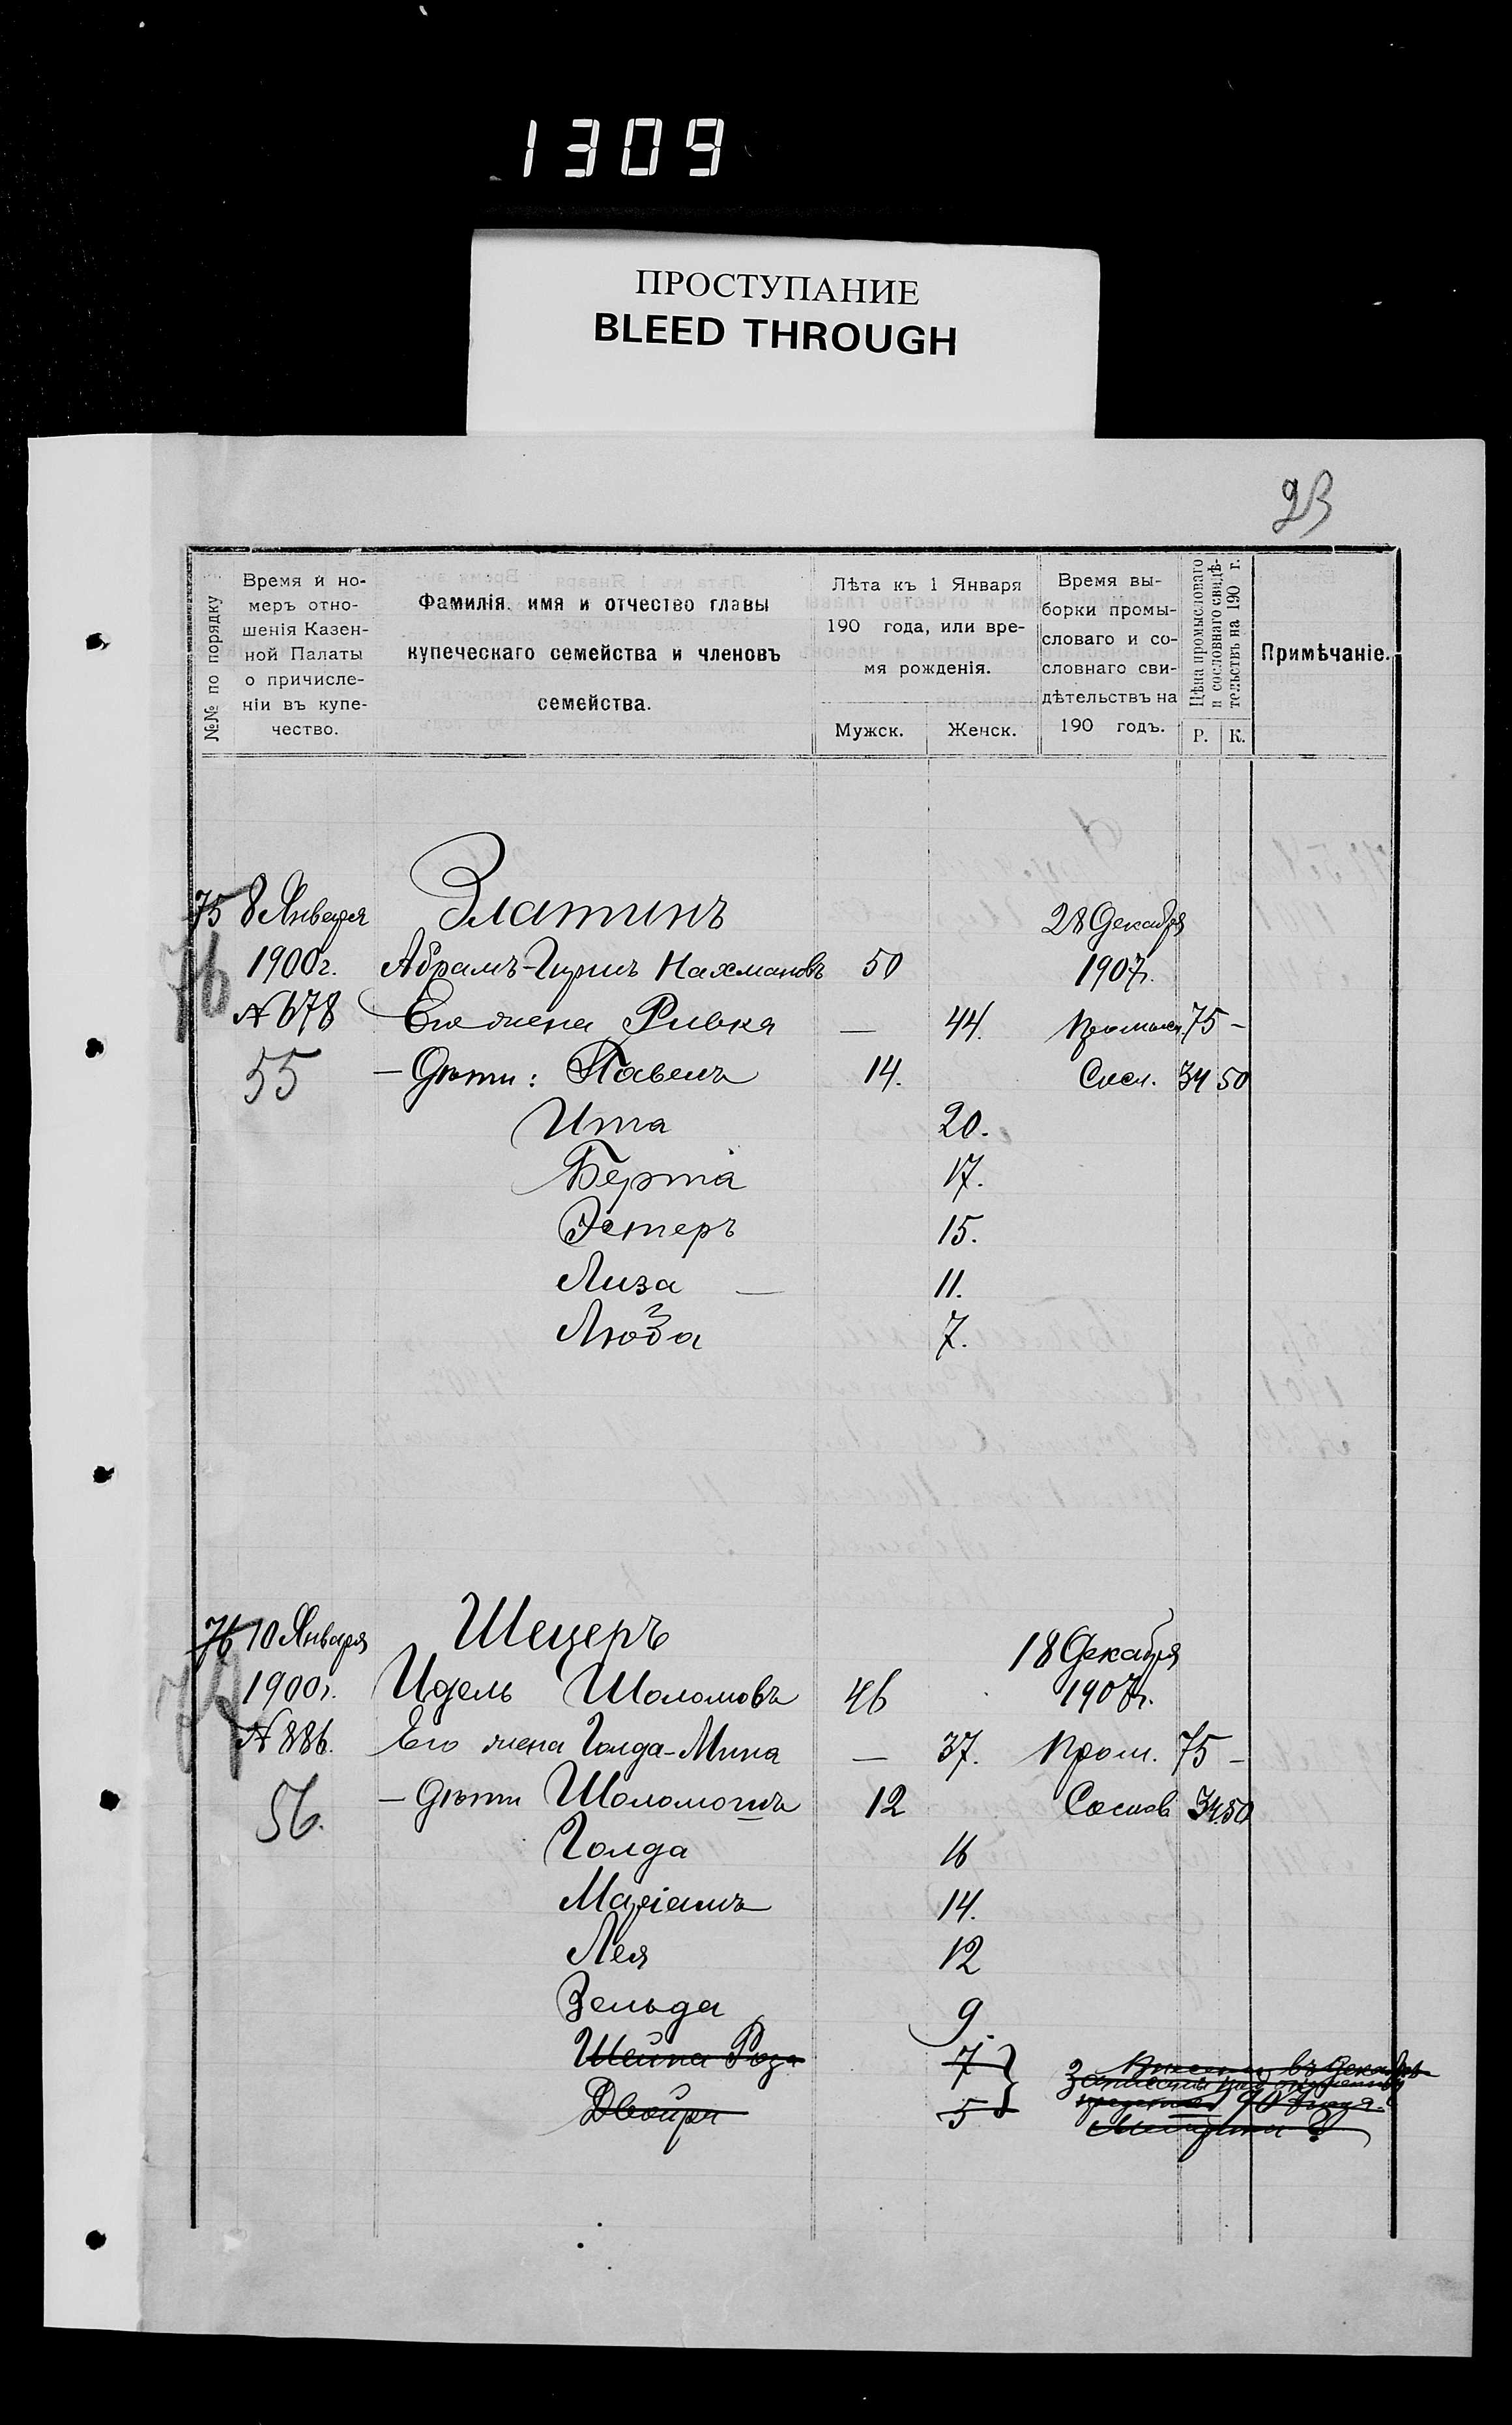 1309
ПРОСТУПАНИЕ
BLEED THROUGH
23
№№ по порядку
Время и но-
меръ отно-
шенія Казен-
ной Палаты
о причисле-
ніи въ купе-
чество.
Фамилія, имя и отчество главы
купеческаго семейства и членовъ
семейства.
Лѣта къ 1 Января
190 года, или вре-
мя рожденія.
Мужск. Женск.
Время вы-
борки промы-
словаго и со-
словнаго сви-
дѣтельствъ на
190 годъ.
Цѣна промысловаго
и сословнаго свидѣ-
тельствъ на 190 г.
Р. К.
Примѣчаніе.
75 8 Января Златинъ 28 Декабря
76 1900г. Абрамъ-Гиршъ Нахмановъ 50 1907г.
№ 678 Его жена Ривка — 44. Промысл. 75 —
55 — Дѣти: Павелъ 14. Сосл. 34 50
Ита 20.
Берта 17.
Эстеръ 15.
Лиза — 11.
Люба 7.
76 10 Января Шецеръ 18 Декабря
77 1900г. Идель Шоломовъ 46 1907г.
№ 886. Его жена Голда-Мина — 37. Пром. 75 —
56. — Дѣти Шоломонъ 12 Сослов 34.50
Голда 16
Маріамъ 14.
Лея 12
Зельда 9.
Шейна Роза 7
Двейра 5
въ Декабрѣ